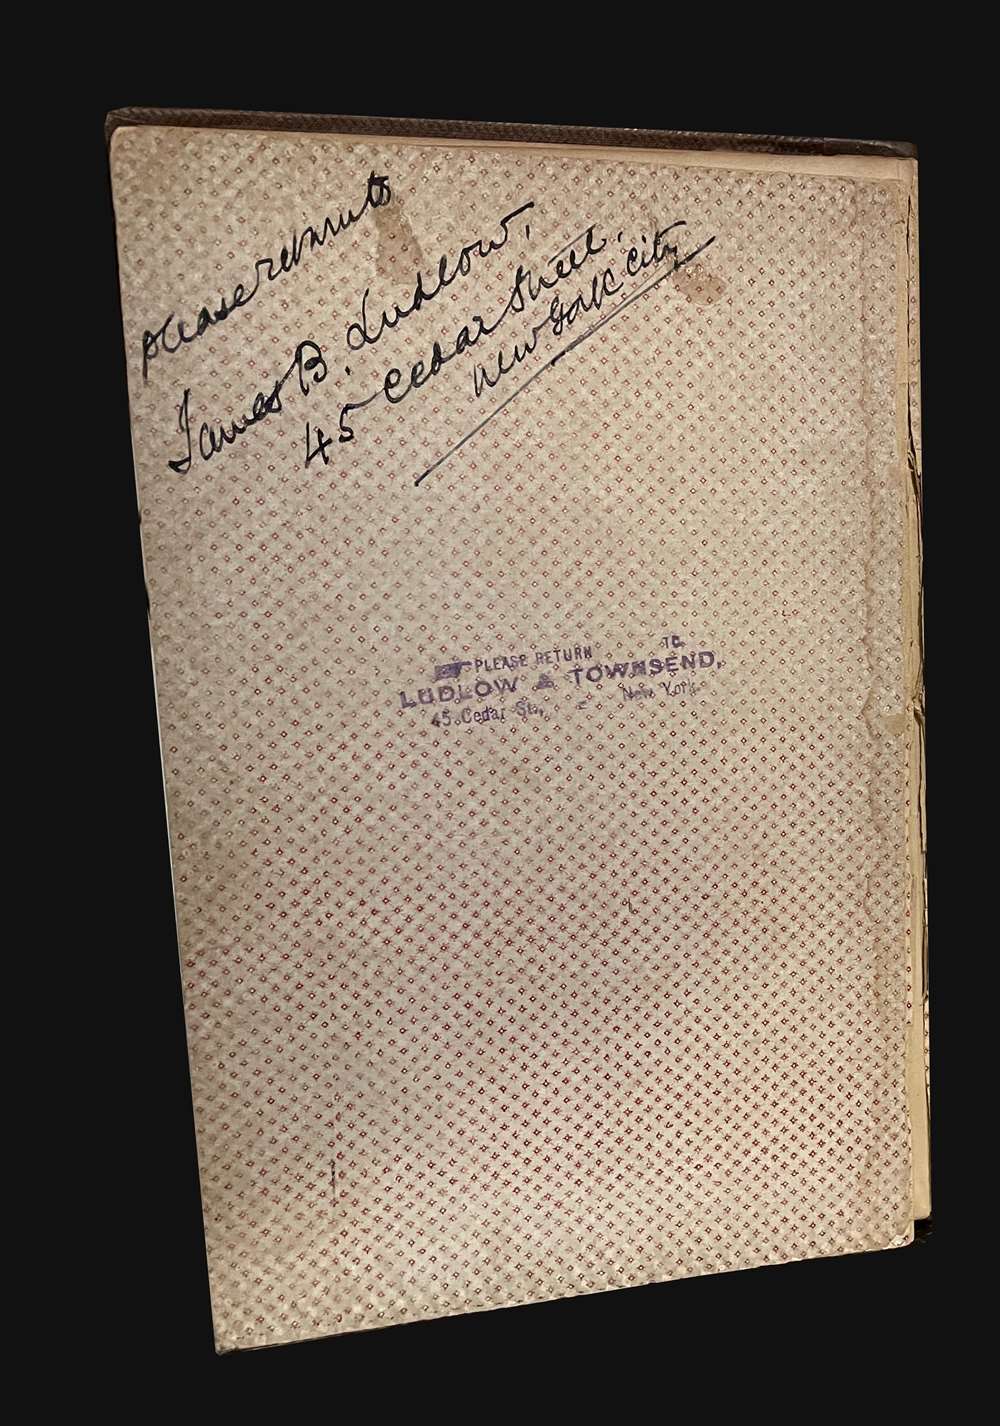 please return to
James B. Ludlow,
45 Cedar Street,
New York City
PLEASE RETURN TO
LUDLOW & TOWNSEND,
45 Cedar St., N. York